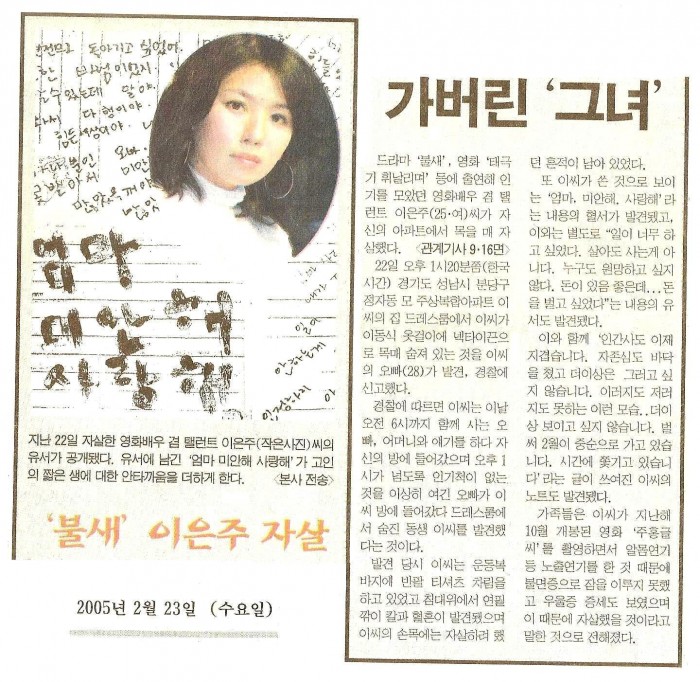 가버린 '그녀'
드라마 '불새', 영화 '태극
기 휘날리며' 등에 출연해 인
기를 모았던 영화배우 겸 탤
런트 이은주(25·여)씨가 자
신의 아파트에서 목을 매 자
살했다. <관계기사 9·16면>
22일 오후 1시20분쯤(한국
시간) 경기도 성남시 분당구
정자동 모 주상복합아파트 이
씨의 집 드레스룸에서 이씨가
이동식 옷걸이에 넥타이끈으
로 목매 숨져 있는 것을 이씨
의 오빠(28)가 발견, 경찰에
신고했다.
경찰에 따르면 이씨는 이날
오전 6시까지 함께 사는 오
빠, 어머니와 얘기를 하다 자
신의 방에 들어갔으며 오후 1
시가 넘도록 인기척이 없는
것을 이상히 여긴 오빠가 이
씨 방에 들어갔다 드레스룸에
서 숨진 동생 이씨를 발견했
다는 것이다.
발견 당시 이씨는 운동복
바지에 반팔 티셔츠 차림을
하고 있었고 침대위에서 연필
깎이 칼과 혈흔이 발견됐으며
이씨의 손목에는 자살하려 했
던 흔적이 남아 있었다.
또 이씨가 쓴 것으로 보이
는 '엄마, 미안해, 사랑해'라
는 내용의 혈서가 발견됐고,
이와는 별도로 "일이 너무 하
고 싶었다. 살아도 사는게 아
니다. 누구도 원망하고 싶지
않다. 돈이 있을 좋은데…돈
을 벌고 싶었다"는 내용의 유
서도 발견됐다.
이와 함께 '인간사도 이제
지겹습니다. 자존심도 바닥
을 쳤고 더이상은 그러고 싶
지 않습니다. 이러지도 저러
지도 못하는 이런 모습. 더이
상 보이고 싶지 않습니다. 벌
써 2월이 중순으로 가고 있습
니다. 시간에 쫓기고 있습니
다'라는 글이 쓰여진 이씨의
노트도 발견됐다.
가족들은 이씨가 지난해
10월 개봉된 영화 '주홍글
씨'를 촬영하면서 알몸연기
등 노출연기를 한 것 때문에
불면증으로 잠을 이루지 못했
고 우울증 증세도 보였으며
이 때문에 자살했을 것이라고
말한 것으로 전해졌다.
돌아가고 싶었어
엄마
미안해
사랑해
지난 22일 자살한 영화배우 겸 탤런트 이은주(작은사진)씨의
유서가 공개됐다. 유서에 남긴 '엄마 미안해 사랑해'가 고인
의 짧은 생에 대한 안타까움을 더하게 한다. <본사 전송>
'불새' 이은주 자살
2005년 2월 23일 (수요일)